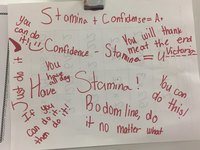 Stamina + Confidense = A+
you can do it!!!
Confidence - Stamina = U
You will thank me at the end
Victoria
Just do it
You have
Have Stamina!
If you can do it then do it!
You can do this!
Bodom line, do it no matter what